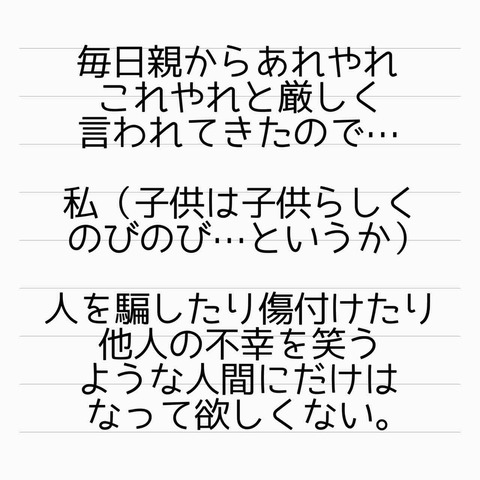 毎日親からあれやれ
これやれと厳しく
言われてきたので…
私（子供は子供らしく
のびのび…というか）
人を騙したり傷付けたり
他人の不幸を笑う
ような人間にだけは
なって欲しくない。